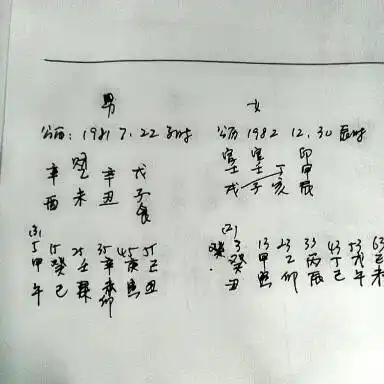 男
公历: 1981 7.22 子时
辛 辛 戊
酉 未 丑 子
食
(3)
5 15 25 35 45 55
甲 癸 壬 辛 庚 己
午 巳 辰 卯 寅 丑
女
公历 1982 12.30 辰时
官 官 印
壬 壬 丁 甲
戌 子 亥 辰
(2)
3 13 23 33 43 53 63
癸 甲 乙 丙 丁 戊 己
丑 寅 卯 辰 巳 午 未